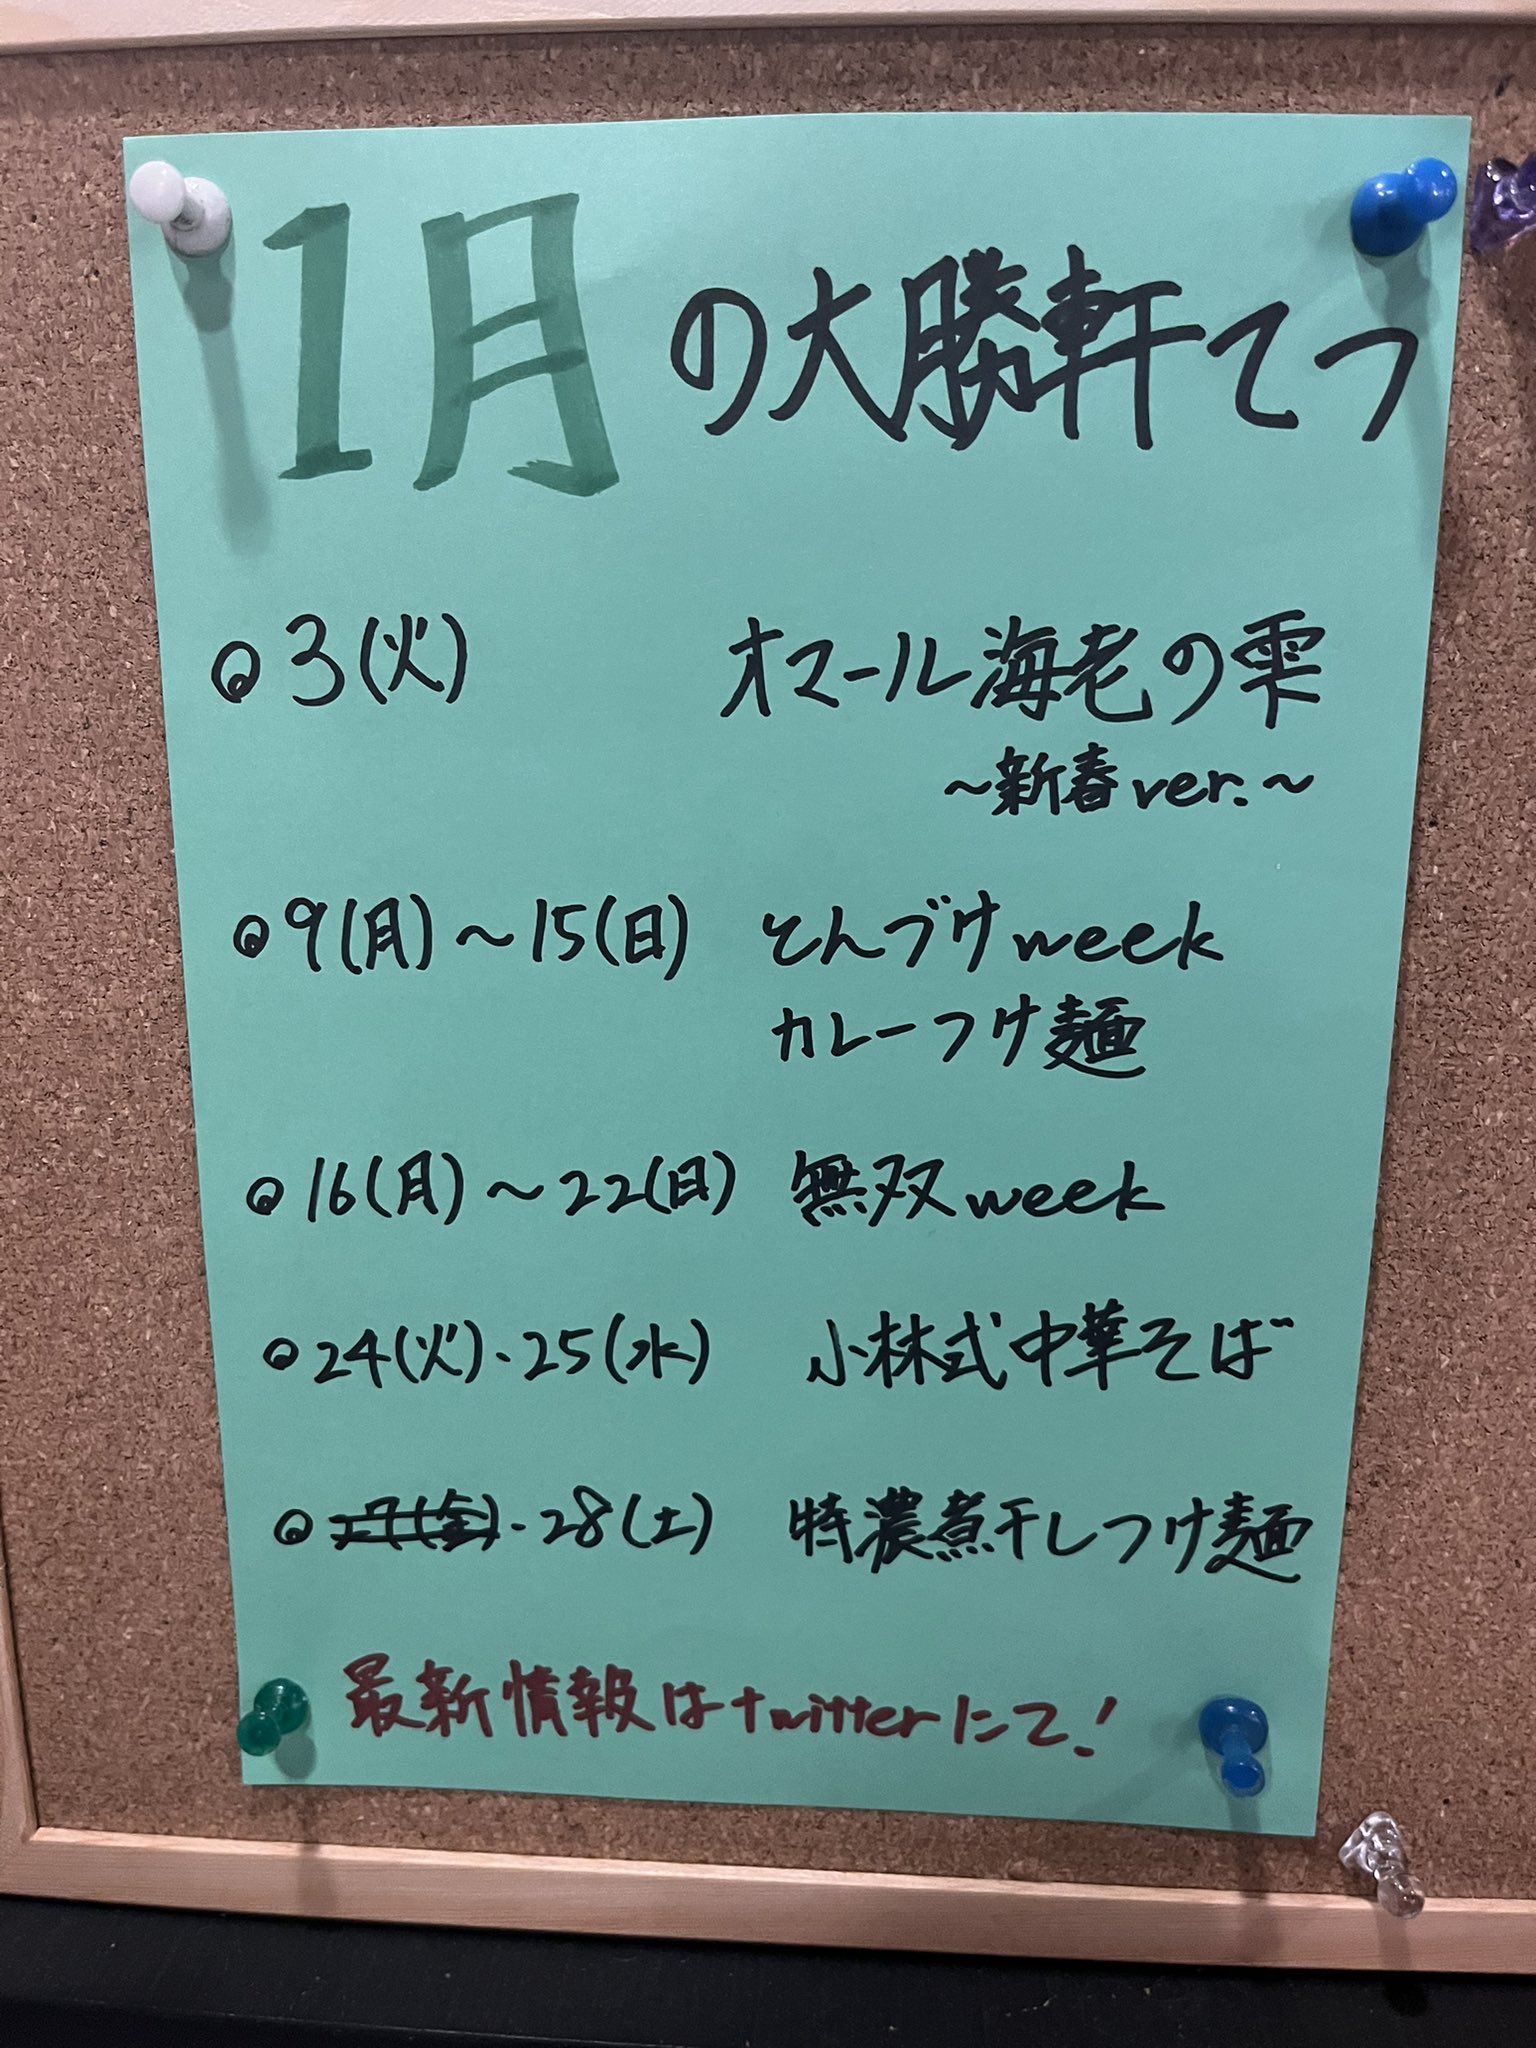 1月の大勝軒てつ
3(火) オマール海老の雫
～新春ver.～
9(月)～15(日) とんづけweek
カレーつけ麺
16(月)～22(日) 無双week
24(火)・25(水) 小林式中華そば
27(金)・28(土) 特濃煮干しつけ麺
最新情報はtwitterにて!